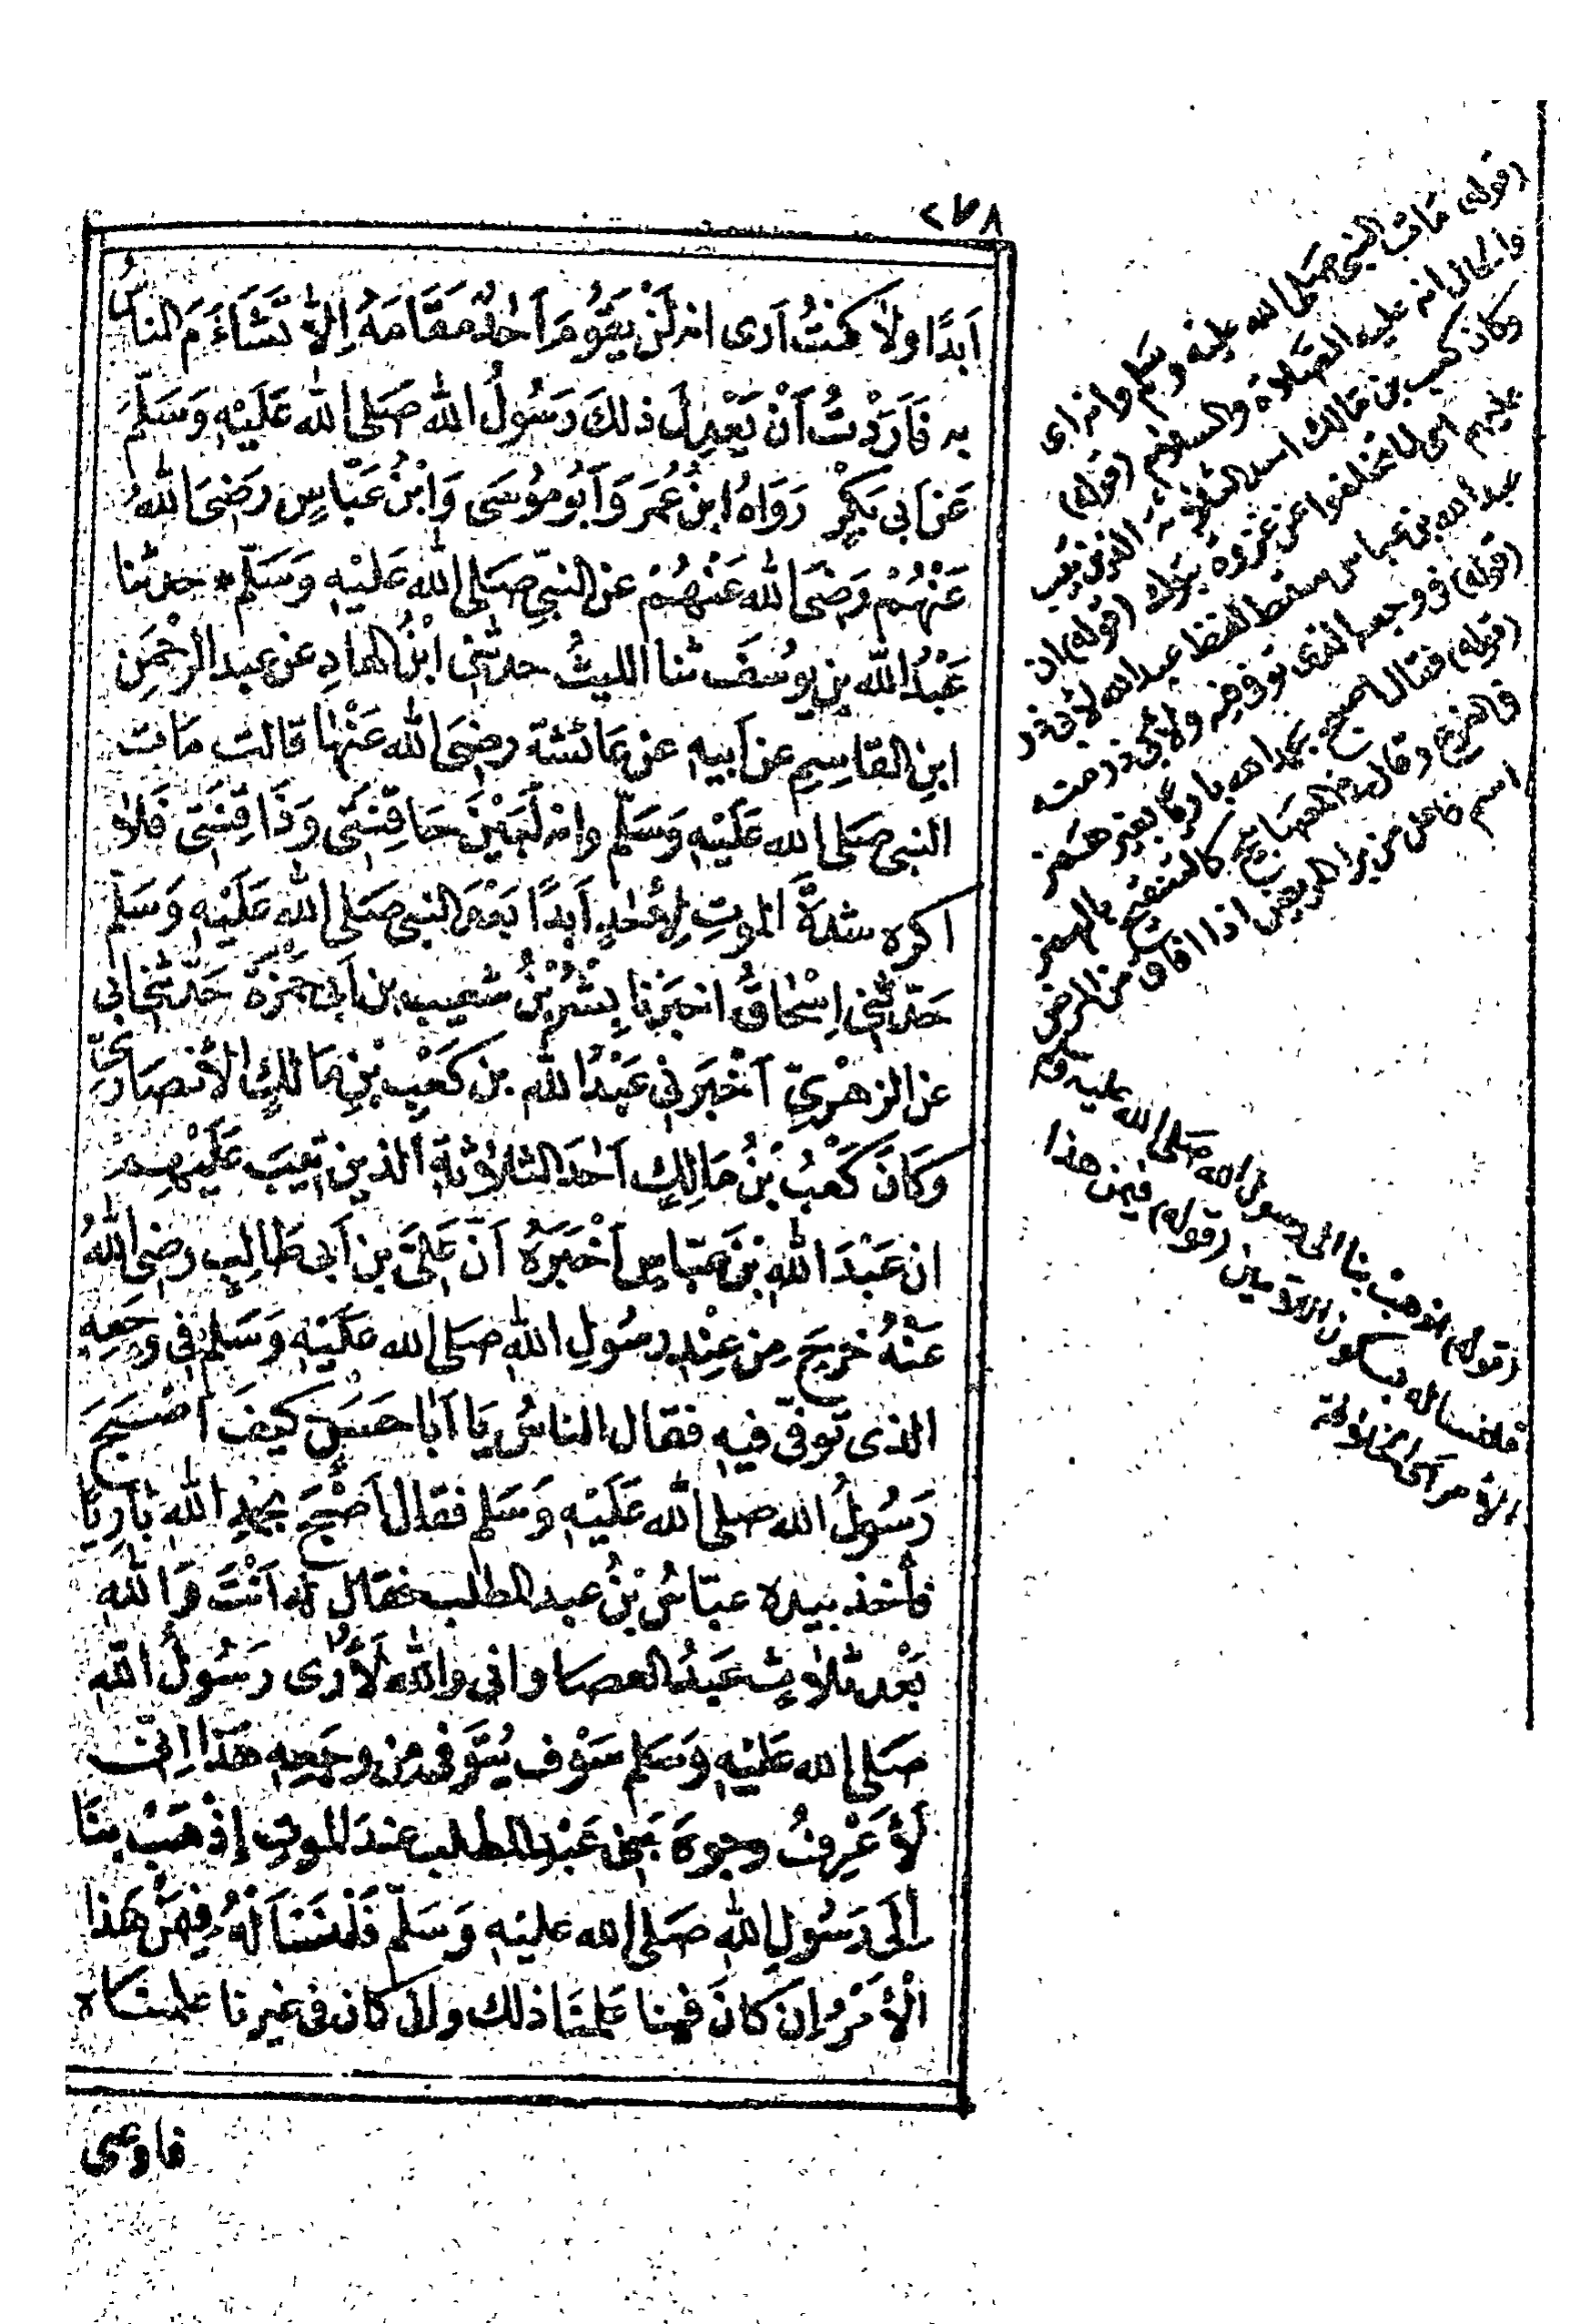 ٢٧٨
اَبَدًا ولاَ كُنْتُ اَرى انه لَنْ يَقُومَ اَحَدٌ مَقَامَهُ اِلاَّ تَشَاءَمَ الناسُ
به فَاَرَدْتُ اَنْ يَعْدِلَ ذلكَ رَسُولُ الله صَلى الله عَلَيْهِ وَسَلَّمَ
عَن ابى بَكْرٍ رَوَاهُ ابنُ عُمَرَ وَاَبُو مُوسَى وَابْنُ عَبَّاسٍ رضِىَ اللهُ
عَنْهُمْ وَرضَىَ الله عَنْهُمْ عَن النبىِّ صَلى الله عَلَيْهِ وَسَلَّم * حدثنا
عَبْدُ الله بن يوسُفَ ثنا الليثُ حدثنى ابْنُ الهادِ عن عبد الرحْمنِ
ابنِ القاسِمِ عن اَبيهِ عن عائشة رضِىَ الله عَنْها قالت مات
النبى صَلى الله عَلَيْهِ وَسَلَّم وانه لَبَيْنَ حَاقِنَتى وَذَاقِنَتِى فَلاَ
اكره شدةَ الموتِ لِاَحَدٍ اَبَدًا بَعْدَ النبى صَلى الله عَلَيْهِ وَسَلَّم
حَدّثنى اِسْحاقُ اخبَرَنا بِشْرُ بْنُ شعيب بن اَبى حَمْزَةَ حَدّثنى ابى
عن الزهْرِىِّ اَخْبَرَنى عَبْدُ الله بن كَعْبِ بْنِ مَالكٍ الاَنصَارِىُّ
وَكَانَ كَعْبُ بْنُ مَالِكٍ اَحَدَ الثلاَثةِ الذين تِيبَ عَلَيْهِمْ
ان عَبْدَ اللهِ بْنَ عَبّاسٍ اَخْبَرَهُ اَنّ عَلِىَّ بن اَبى طَالِبٍ رضى اللهُ
عَنْهُ خَرجَ مِن عِنْدِ رسُولِ اللهِ صَلى الله عَلَيْهِ وَسَلم فى وَجَعِهِ
الذى تُوفِّىَ فيهِ فقال الناسُ يَا اَبا حَسَنٍ كيفَ اَصْبَحَ
رَسُولُ الله صلى الله عَلَيْهِ وَسَلم فقال اَصْبَحَ بحَمْدِ الله بارِئًا
فأخذ بيده عبّاسُ بْنُ عبد المطلب فقال له اَنْتَ وَاللهِ
بَعْد ثلاَثٍ عَبْدُ العصا وانى والله لَأُرَى رَسُولَ الله
صَلى الله عَلَيْهِ وَسَلم سَوْف يُتَوَفى من وجَعِهِ هَذَا اِنِّى
لَاَعْرِفُ وجوهَ بَنى عَبْدِ المطلب عندَ الموتِ اِذْهَبْ بِنَا
اِلَى رَسُولِ اللهِ صَلى الله عليْهِ وَسَلَّم فَلْنَسْاَلْهُ فِيمَنْ هَذا
الْاَمْرُ اِن كَانَ فينا عَلِمْنَا ذلك وان كان فى غيرنا علمناه
فاوصى
(قوله) مات النبى صلى الله عليه وسلم وانه اى
والحال انه عليه الصلاة والسلام (قوله)
وكان كعب بن مالك احد الثلاثة الذين تيب
عليهم اى لما تخلفوا عن غزوة تبوك (قوله) ان
عبد الله بن عباس سقط لفظ عبد الله لابى ذر
(قوله) فى وجعه الذى توفى فيه ولابى ذر منه
(قوله) فقال اصبح بحمد الله بارئا بغير همز
فى الفرع وقال فى المصابيح كالتنقيح بالهمز
اسم فاعل من برا المريض اذا افاق من المرض
(قوله) اذهب بنا الى رسول الله صلى الله عليه وسلم
فلنساله بسكون اللامين (قوله) فيمن هذا
الامر اى الخلافة